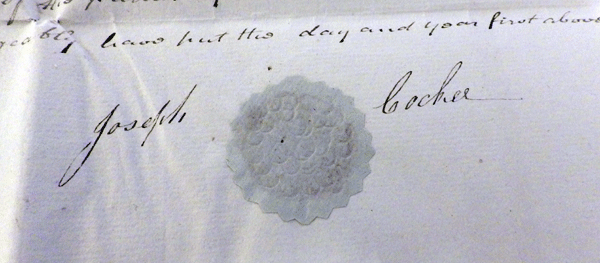 of the
have put the day and year first above
Joseph Cocker